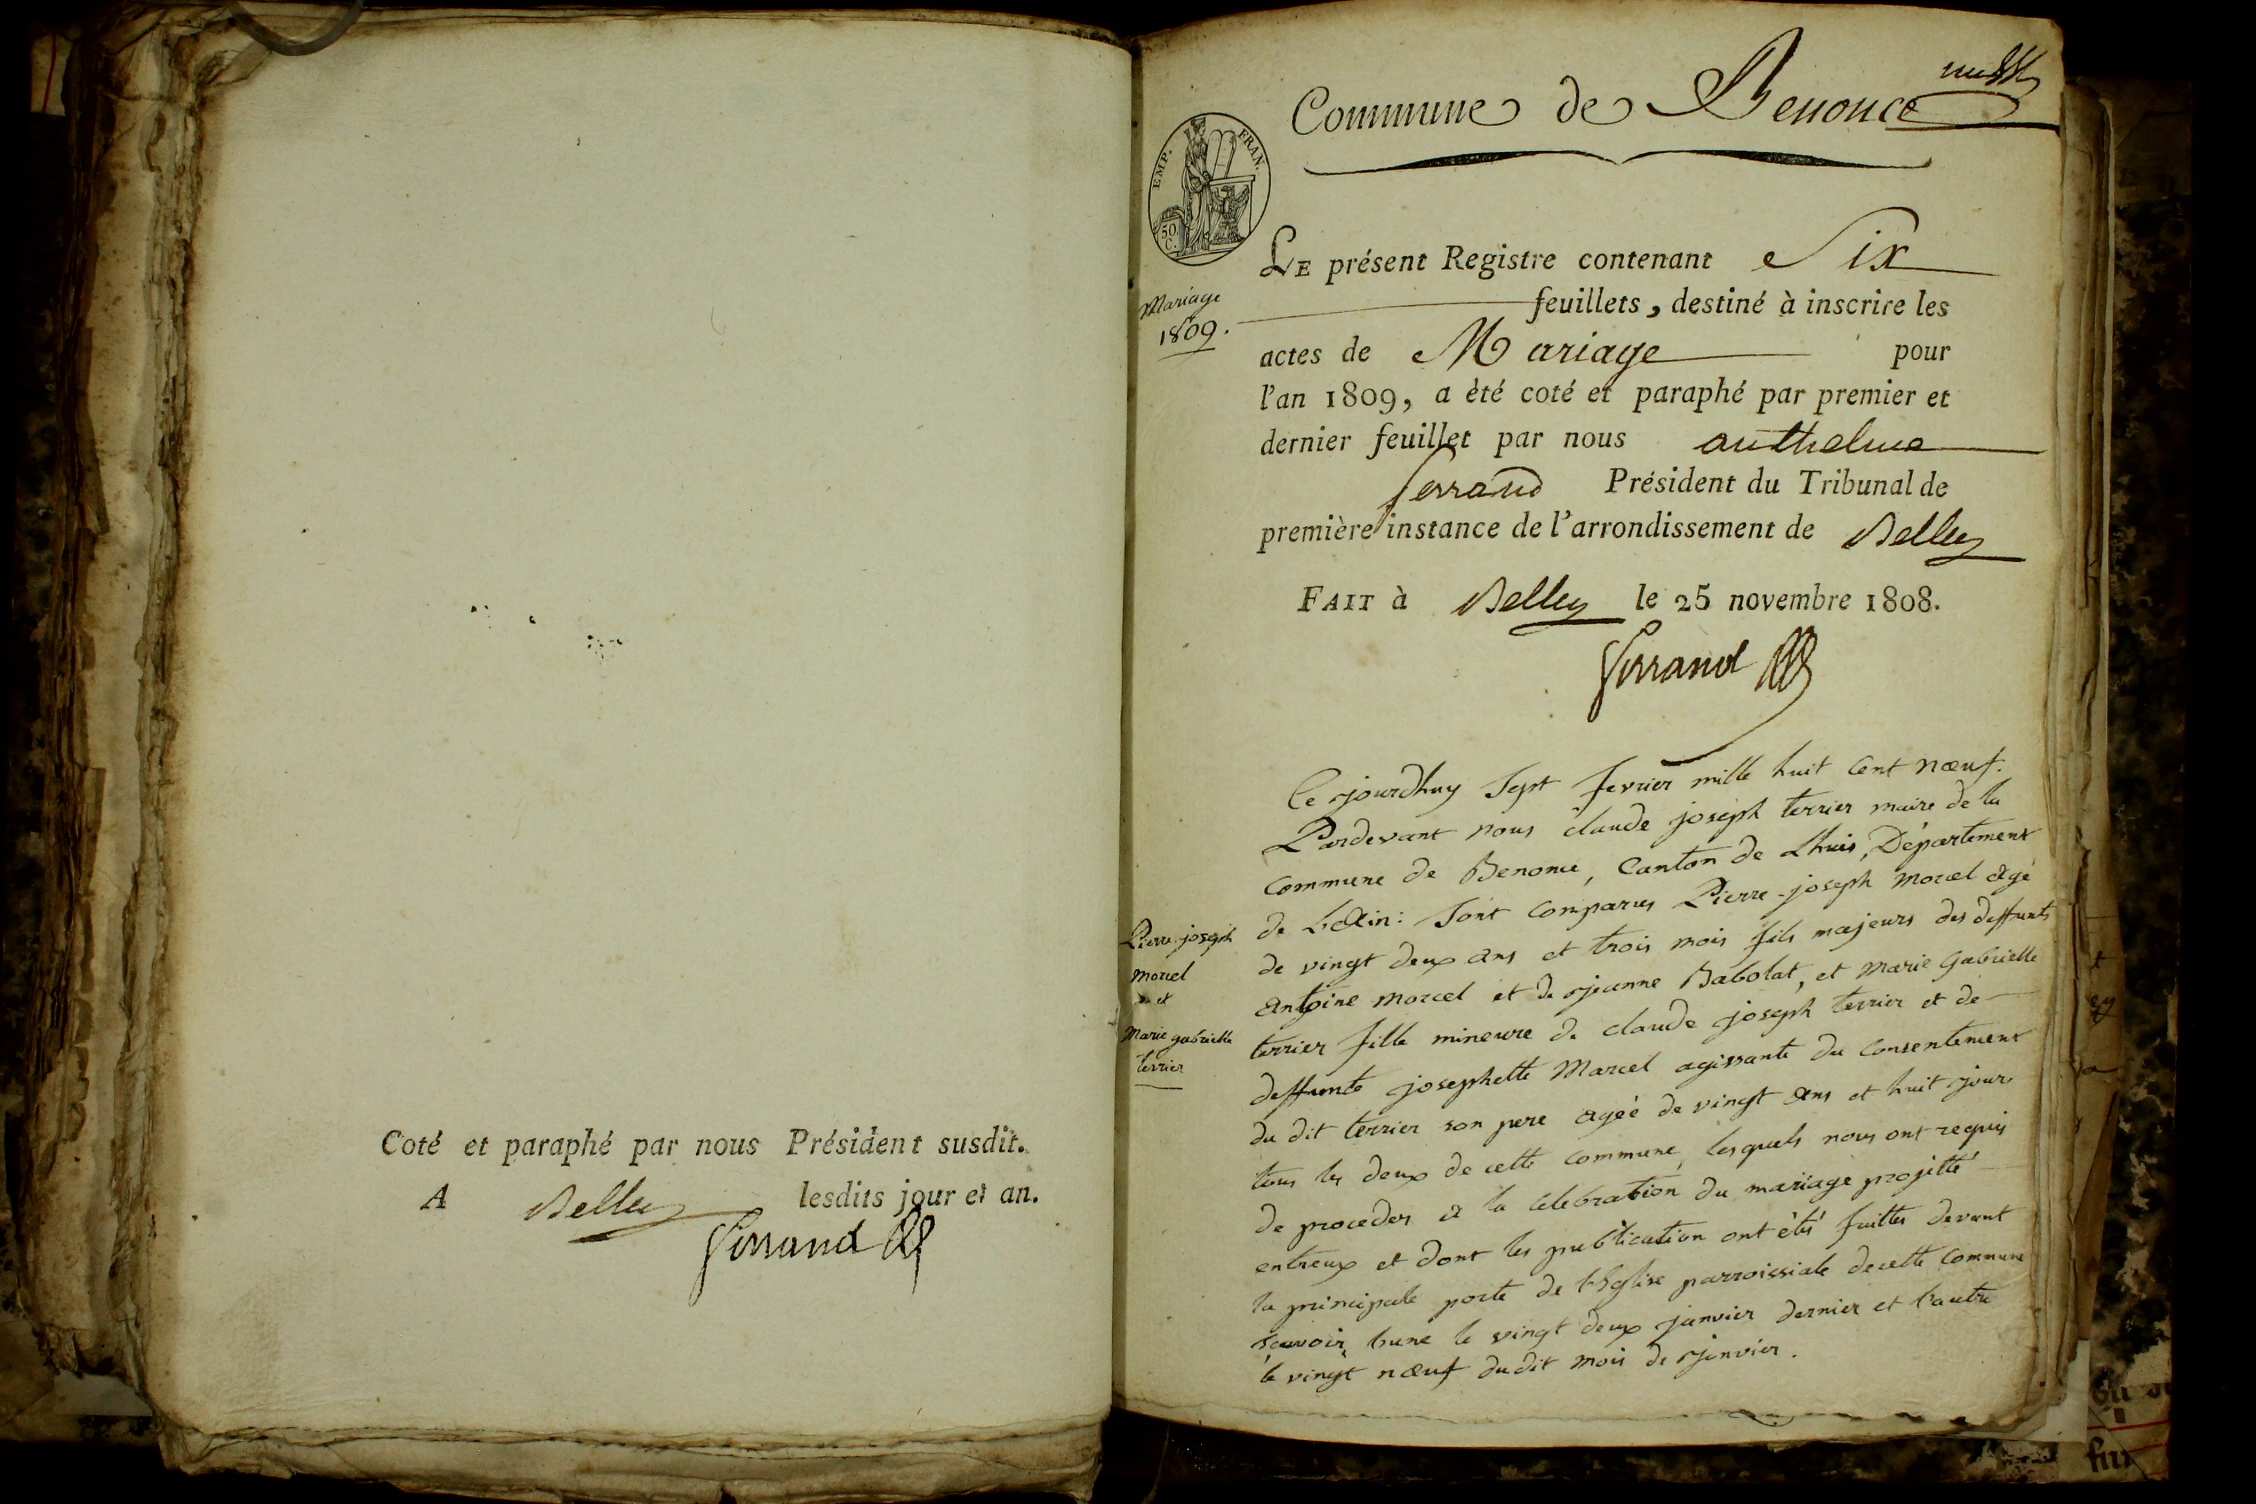 Coté et paraphé par nous Président susdit.
A Belley lesdits jour et an.
Ferrand
Commune de Benonce
EMP. FRAN.
50 C.
Mariage
1809.
LE présent Registre contenant Six
feuillets, destiné à inscrire les
actes de Mariage pour
l'an 1809, a été coté et paraphé par premier et
dernier feuillet par nous anthelme
ferrand Président du Tribunal de
première instance de l'arrondissement de Belley
FAIT à Belley le 25 novembre 1808.
Ferrand
Pierre-joseph
morcel
et
Marie gabrielle
terrier
Cejourdhuy Sept fevrier mille huit Cent nœuf.
Pardevant nous claude joseph terrier maire de la
commune de Benonce, Canton de Lhuis, Département
de L'Ain: Sont comparus Pierre-joseph morcel agé
de vingt deux ans et trois mois fils majeurs des deffunts
antoine morcel et de jeanne Babolat, et marie Gabrielle
terrier fille mineure de claude joseph terrier et de
deffunte josephette Marcel agissante du Consentement
du dit terrier son pere agéé de vingt ans et huit jours
tous les deux de cette commune, lesquels nous ont requis
de proceder a la celebration du mariage projetté
entreux et dont les publication ont étés faittes devant
la principale porte de l'Eglise parroissiale de cette Commune
scavoir, l'une le vingt deux janvier dernier et l'autre
le vingt nœuf du dit mois de janvier.